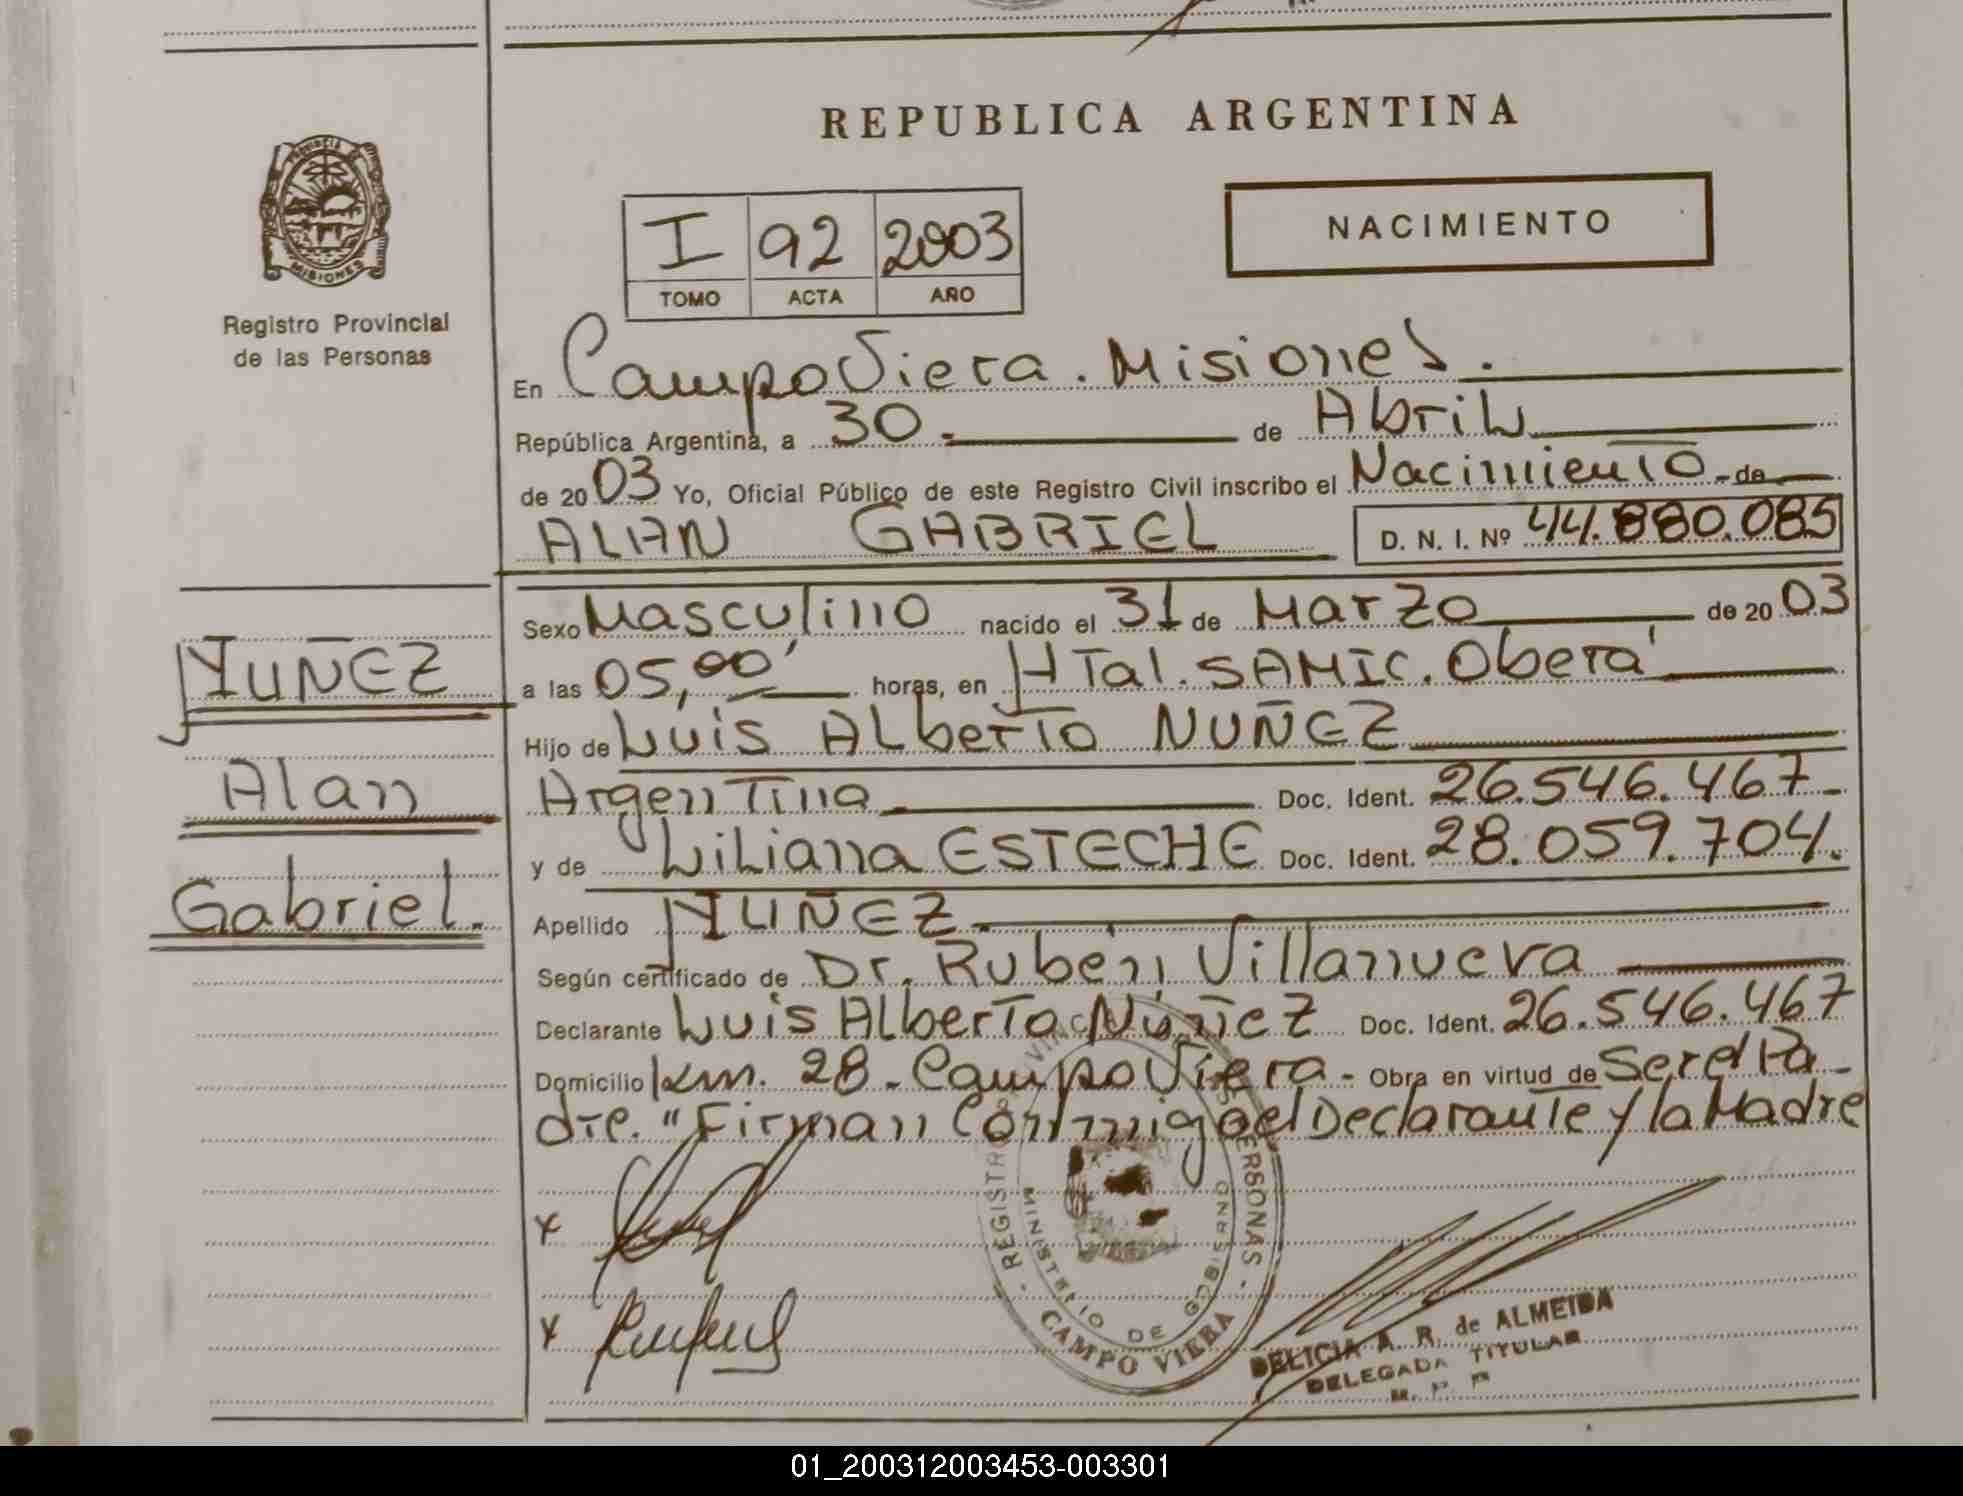 REPUBLICA ARGENTINA
PROVINCIA DE
MISIONES
Registro Provincial
de las Personas
I 92 2003
TOMO ACTA AÑO
NACIMIENTO
En Campo Viera. Misiones.
República Argentina, a 30. de Abril
de 2003 Yo, Oficial Público de este Registro Civil inscribo el Nacimiento - de
ALAN GABRIEL D. N. I. Nº 44.880.085
Sexo Masculino nacido el 31 de Marzo de 2003
NUÑEZ
a las 05,00' horas, en HTal. SAMIC. Oberá
Hijo de Luis Alberto NUÑEZ
Alan
Argentina Doc. Ident. 26.546.467-
y de Liliana ESTECHE Doc. Ident. 28.059.704.
Gabriel.
Apellido NUÑEZ
Según certificado de Dr. Rubén Villanueva
Declarante Luis Alberto Núñez Doc. Ident. 26.546.467
Domicilio km. 28 - Campo Viera - Obra en virtud de Ser el Pa-
dre. "Firman Conmigo el Declarante y la Madre
x
x
REGISTRO PROVINCIAL PERSONAS
MINISTERIO DE GOBIERNO
CAMPO VIERA
DELICIA A. R. de ALMEIDA
DELEGADA TITULAR
01_200312003453-003301